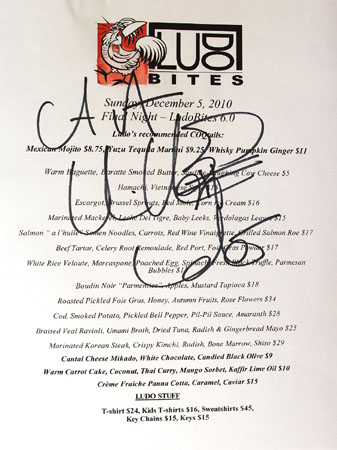 LUDO
BITES
Sunday, December 5, 2010
Final Night – LudoBites 6.0
Ludo's recommended COQtails:
Mexican Mojito $8.75, Yuzu Tequila Martini $9.25, Whisky Pumpkin Ginger $11
Warm Baguette, Baratte Smoked Butter, Laughing Cow Cheese $5
Hamachi, Vietnamese
Escargot, Brussel Sprouts, Red Ice Cream $16
Marinated Mackerel, Leche Del Tigre, Baby Leeks, Verdolagas Leaves
Salmon " a l'huile" Somen Noodles, Carrots, Red Wine Vinaigrette, Grilled Salmon Roe $17
Beef Tartar, Celery Root Remoulade, Red Port, Foie Gras Powder $17
White Rice Veloute, Marcaspone, Poached Egg, Black Truffle, Parmesan
Bubbles
Boudin Noir "Parmentier", Apples, Mustard Tapioca $18
Roasted Pickled Foie Gras, Honey, Autumn Fruits, Rose Flowers $34
Cod, Smoked Potato, Pickled Bell Pepper, Pil-Pil Sauce, Amaranth $28
Braised Veal Ravioli, Umami Broth, Dried Tuna, Radish & Gingerbread Mayo $25
Marinated Korean Steak, Crispy Kimchi, Radish, Bone Marrow, Shito $29
Cantal Cheese Mikado, White Chocolate, Candied Black Olive $9
Warm Carrot Cake, Coconut, Thai Curry, Mango Sorbet, Kaffir Lime Oil $10
Crème Fraîche Panna Cotta, Caramel, Caviar $15
LUDO STUFF
T-shirt $24, Kids T-shirts $16, Sweatshirts $45,
Key Chains $15, Keys $15